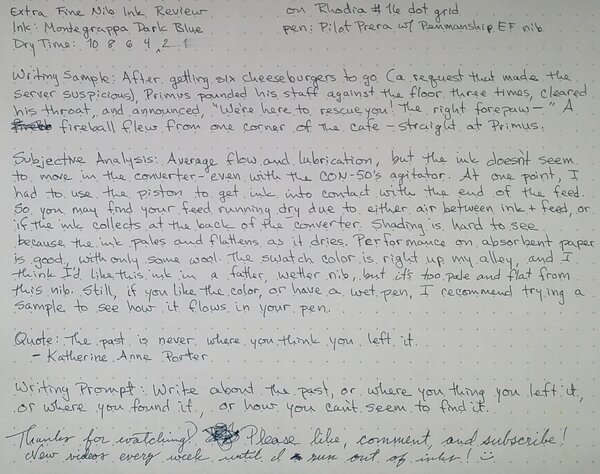 Extra Fine Nib Ink Review on Rhodia #16 dot grid
Ink: Montegrappa Dark Blue pen: Pilot Prera w/ Penmanship EF nib
Dry Time: 10 8 6 4 2 1
Writing Sample: After getting six cheeseburgers to go (a request that made the
server suspicious), Primus pounded his staff against the floor three times, cleared
his throat, and announced, "We're here to rescue you! The right forepaw—" A
fireball flew from one corner of the cafe – straight at Primus.
Subjective Analysis: Average flow and lubrication, but the ink doesn't seem
to move in the converter – even with the CON-50's agitator. At one point, I
had to use the piston to get ink into contact with the end of the feed.
So you may find your feed running dry due to either air between ink + feed, or
if the ink collects at the back of the converter. Shading is hard to see
because the ink pales and flattens as it dries. Performance on absorbent paper
is good, with only some wool. The swatch color is right up my alley, and I
think I'd like this ink in a fatter, wetter nib, but it's too pale and flat from
this nib. Still, if you like the color, or have a wet pen, I recommend trying a
sample to see how it flows in your pen.
Quote: The past is never where you think you left it.
- Katherine Anne Porter
Writing Prompt: Write about the past, or where you thing you left it,
or where you found it, or how you can't seem to find it.
Thanks for watching! Please like, comment, and subscribe!
New videos every week until I run out of inks! :)